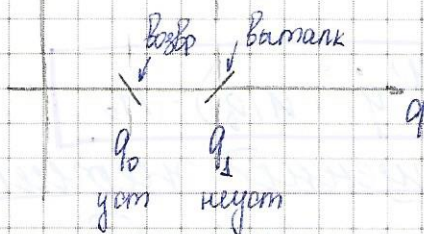 возвр выталк
q
q₀ q₁
уст неуст